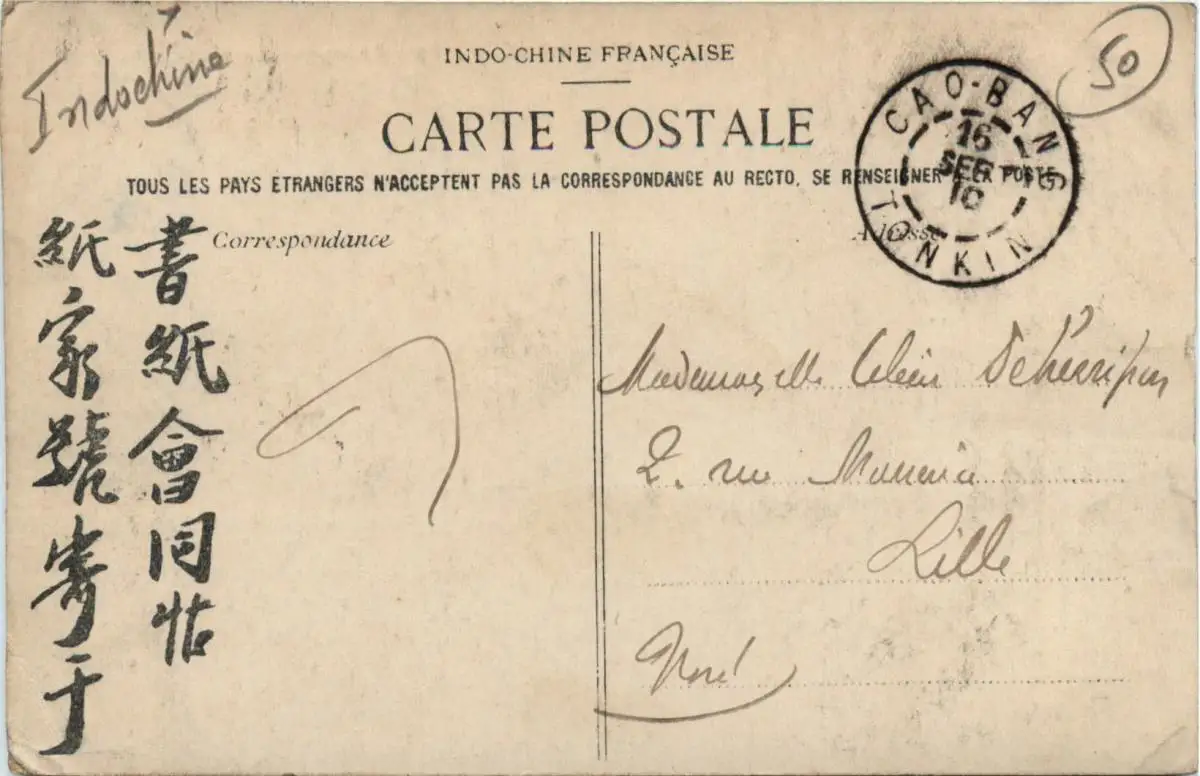 Indochine
INDO-CHINE FRANÇAISE
50
CARTE POSTALE
TOUS LES PAYS ETRANGERS N'ACCEPTENT PAS LA CORRESPONDANCE AU RECTO, SE RENSEIGNER A LA POSTE
CAO-BANG
16
SEPT
10
TONKIN
Correspondance
Adresse
書紙會同帖
紙家號寄于
Mademoiselle
2. rue
Lille
Nord